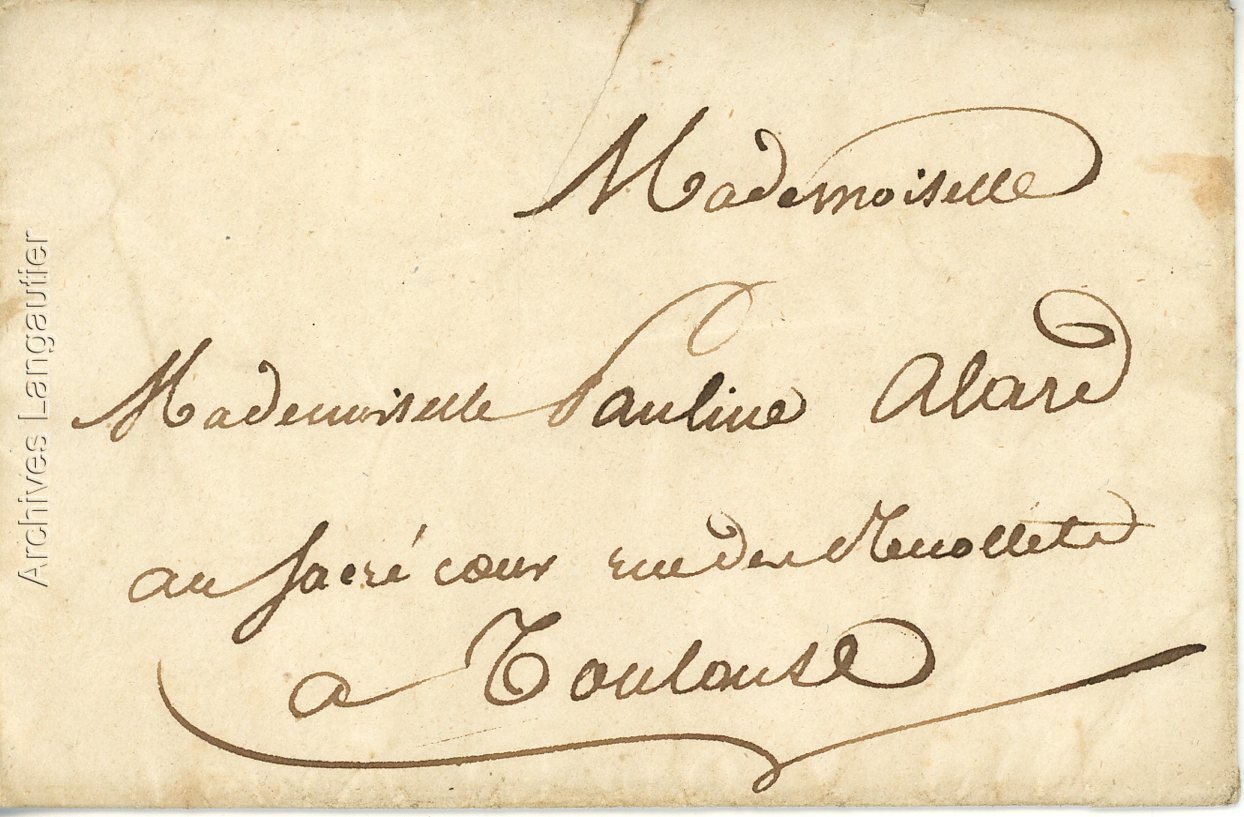 Mademoiselle
Mademoiselle Pauline Alard
au Sacré cœur rue des Recollets
a Toulouse
Archives Langautier